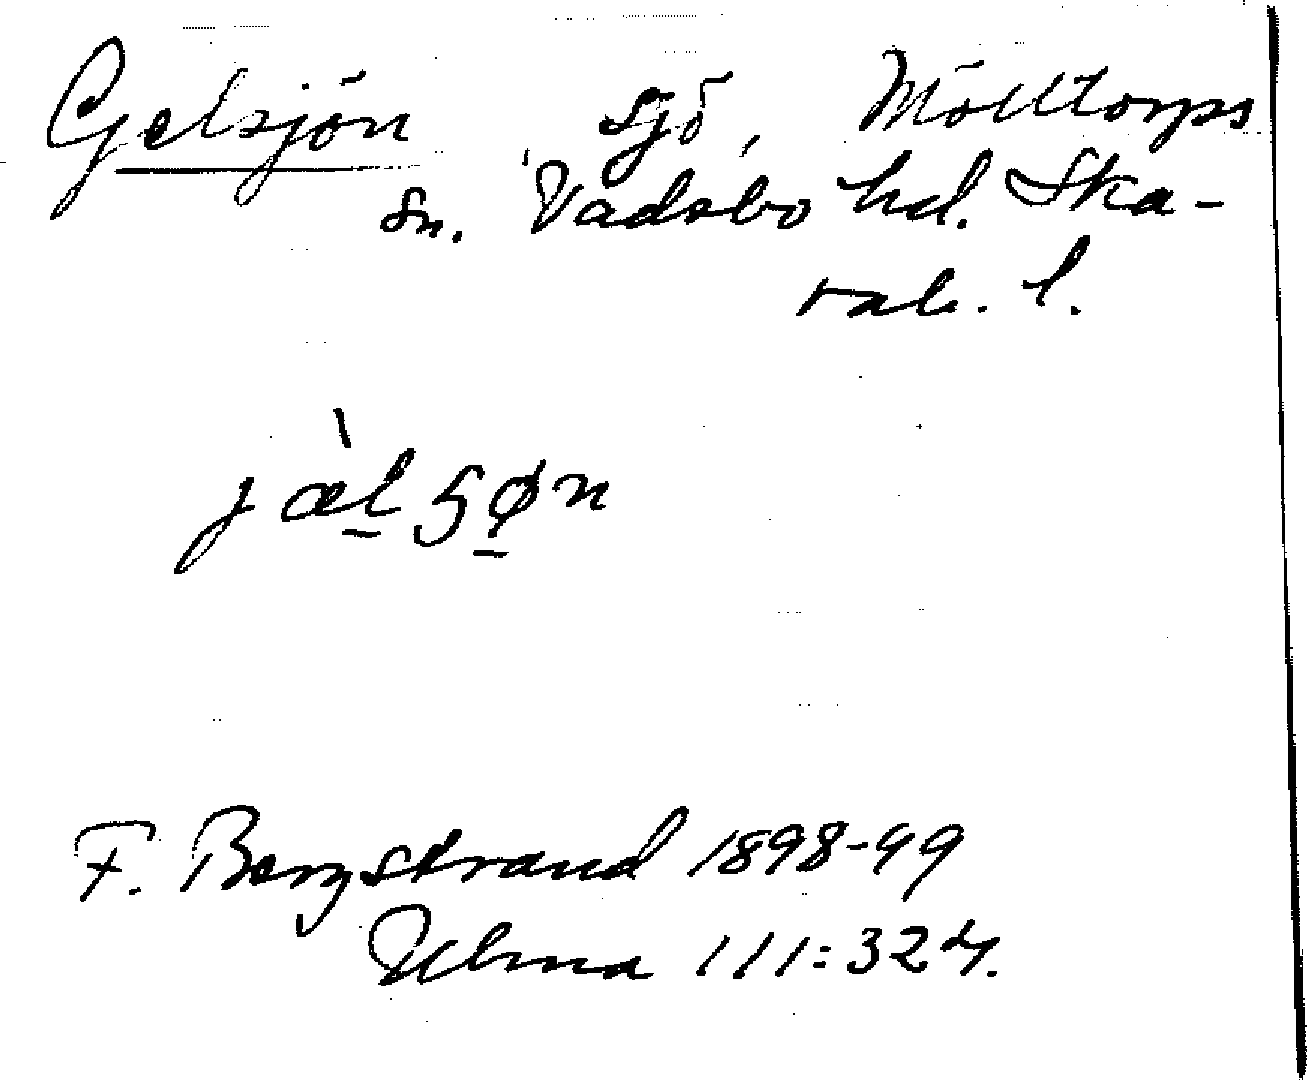 Gelsjön sjö, Mölltorps
sn. Vadsbo hd. Ska-
rab. l.
jæ̀lsøn
F. Bergstrand 1898-99
Ulma 111:324.